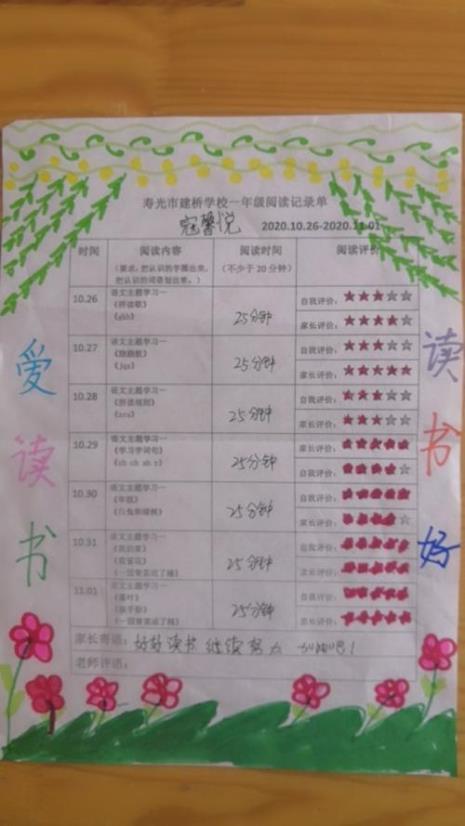 寿光市建桥学校一年级阅读记录单
寇馨悦 2020.10.26-2020.11.01
时间 阅读内容 阅读时间 阅读评价
(要求:把认识的字圈出来,把认识的词语划出来。) (不少于20分钟)
10.26 语文主题学习一 25分钟 自我评价:★★★☆☆
《拼读歌》 家长评价:★★★★☆
《gkh》
10.27 语文主题学习一 25分钟 自我评价:★★★★☆
《jqx》 家长评价:★★★★★
10.28 语文主题学习一 25分钟 自我评价:★★★☆☆
《zcs》 家长评价:★★★★☆
10.29 语文主题学习一 25分钟 家长评价:★★★★★
《学习字词句》 自我评价:★★★★☆
《zh ch sh r》
10.30 语文主题学习一 25分钟 自我评价:★★★★★
家长评价:★★★★☆
10.31 语文主题学习一 25分钟 自我评价:★★★★★
家长评价:★★★★★
11.01 语文主题学习一 25分钟 自我评价:★★★★★
家长评价:★★★★★
家长寄语: 好好读书 继续努力
老师评语:
爱读书
读书好